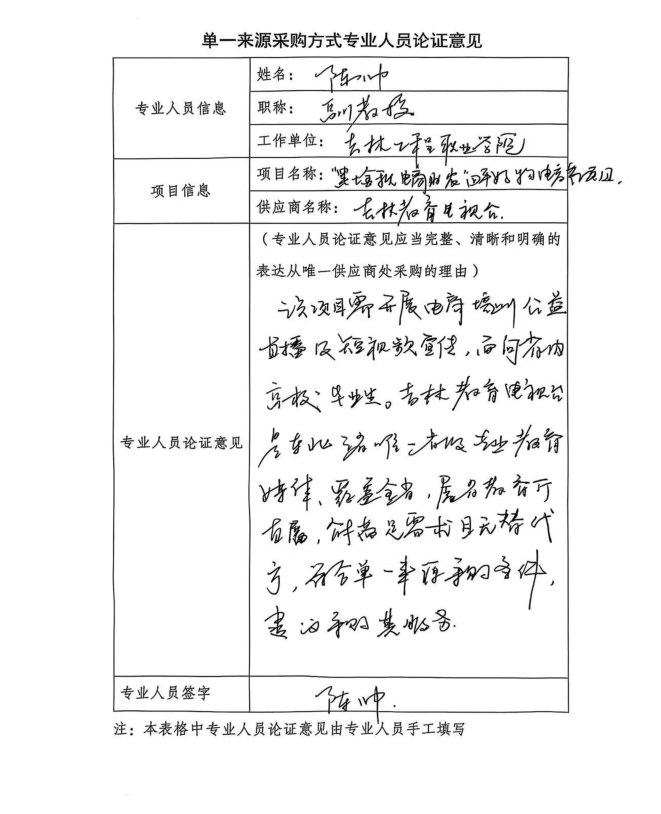 单一来源采购方式专业人员论证意见
专业人员信息
姓名：陈帅
职称：副教授
工作单位：吉林工程职业学院
项目信息
项目名称："黑土金秋 电商助农"吉年好物电商
供应商名称：吉林教育电视台.
专业人员论证意见
（专业人员论证意见应当完整、清晰和明确的
表达从唯一供应商处采购的理由）
该项目需开展电商培训公益
直播及短视频宣传，面向省内
高校毕业生。吉林教育电视台
是东北三省唯一省级专业教育
媒体、覆盖全省，属省教育厅
直属，能满足需求且无替代
方，符合单一来源采购条件，
建议采购其服务.
专业人员签字
陈帅.
注：本表格中专业人员论证意见由专业人员手工填写